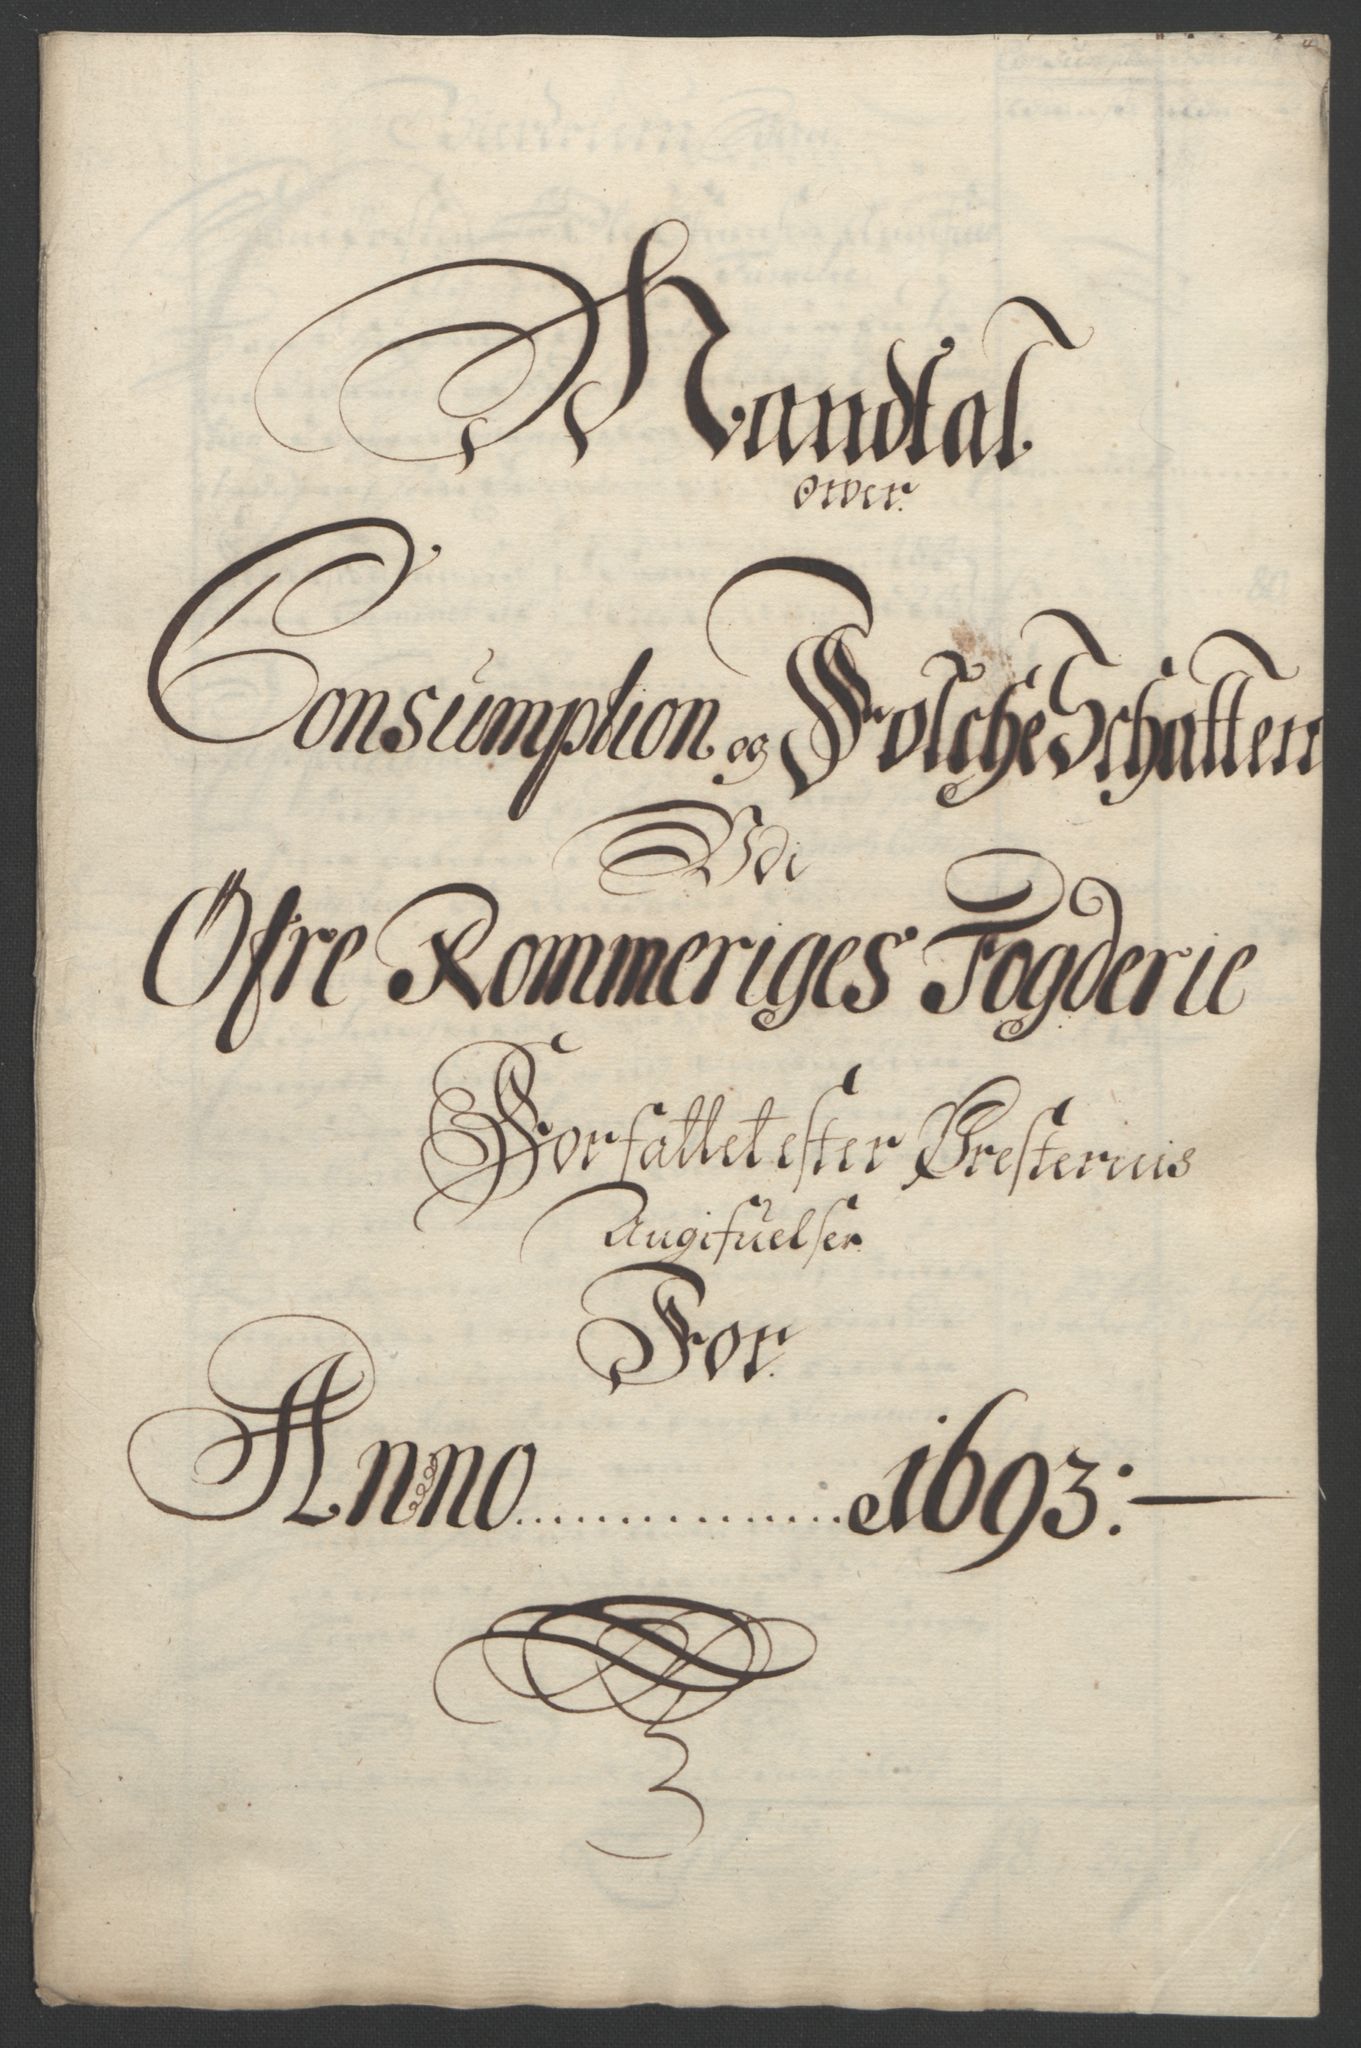 Mandtal
over
Consumption og Folche Schatten
Udi
Öfre Rommeriges Fogderie
Forfattet efter Presternis
Angifuelser
For
Anno ................ 1693:—